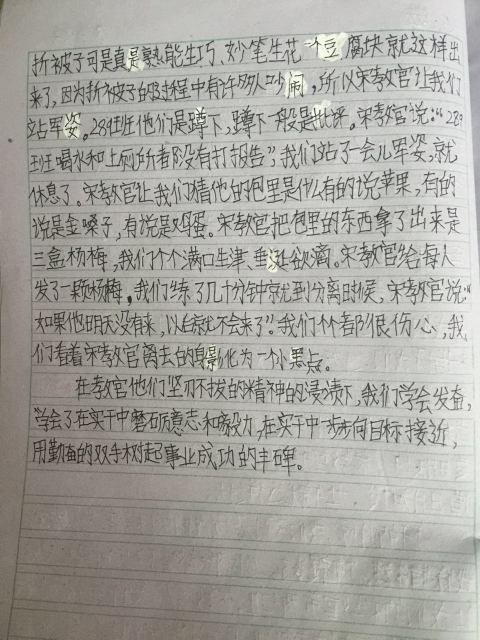 折被子可是真是熟能生巧、妙笔生花一个豆腐块就这样出
来了,因为折被子的过程中有许多人吵闹,所以宋教官让我们
站军姿。289班他们是蹲下,蹲下一般是批评。宋教官说:“289
班喝水和上厕所者都没有打报告”,我们站了一会儿军姿,就
休息了。宋教官让我们猜他的包里是什么有的说苹果,有的
说是金嗓子,有说是鸡蛋。宋教官把包里的东西拿了出来是
三盒杨梅,我们个个满口生津、垂涎欲滴。宋教官给每人
发了一颗杨梅,我们练了几十分钟就到分离时候,宋教官说:“
如果他明天没有来,以后就也不会来了”。我们个个都很伤心,我
们看着宋教官离去的身影化为一个小黑点。
在教官他们坚刃不拔的精神的浸渍下,我们学会发奋,
学会了在实干中磨砺意志和毅力,在实干中一步步向目标接近,
用勤奋的双手树起事业成功的丰碑。